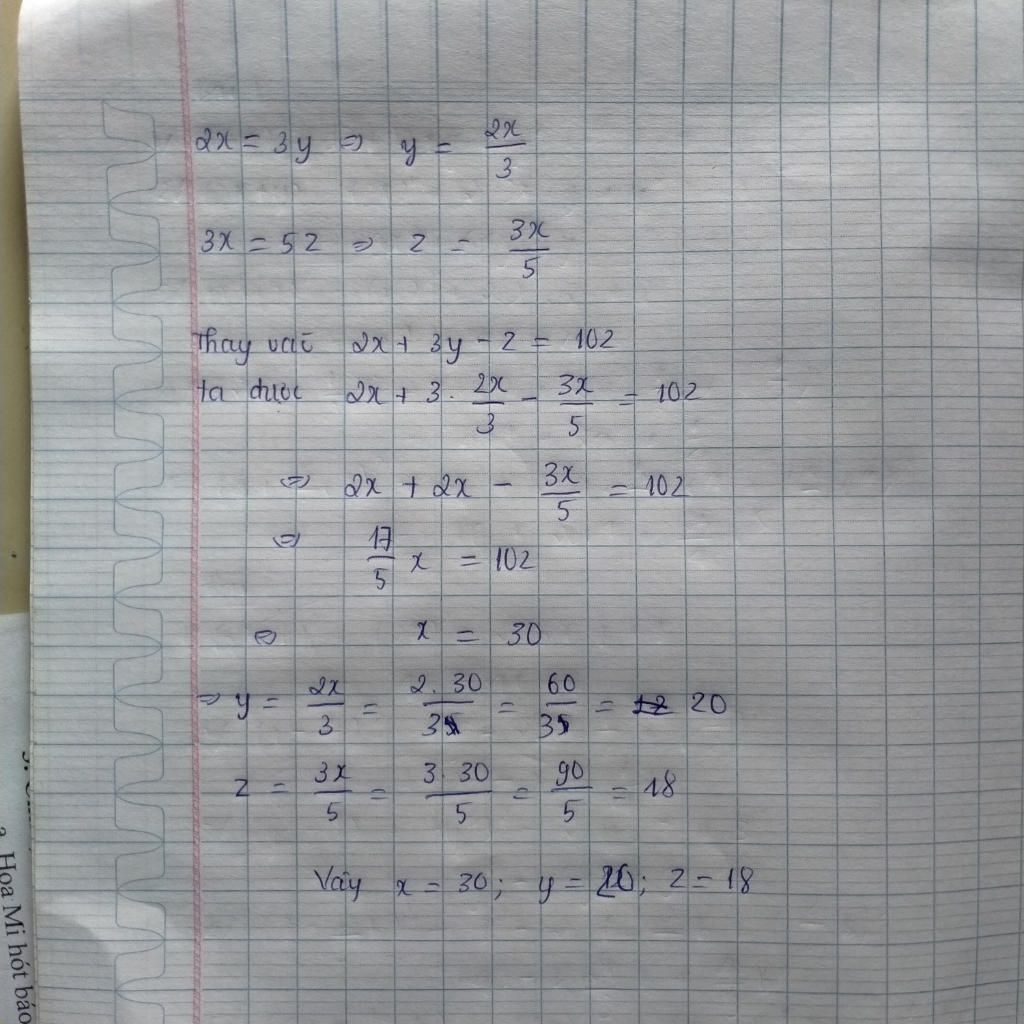 2x = 3y => y = 2x/3
3x = 5z => z = 3x/5
Thay vào 2x + 3y - z = 102
ta được 2x + 3. 2x/3 - 3x/5 = 102
=> 2x + 2x - 3x/5 = 102
=> 17/5 x = 102
=> x = 30
=> y = 2x/3 = 2. 30/3 = 60/3 = 20
z = 3x/5 = 3. 30/5 = 90/5 = 18
Vậy x = 30; y = 20; z = 18
Hoạ Mi hót báo